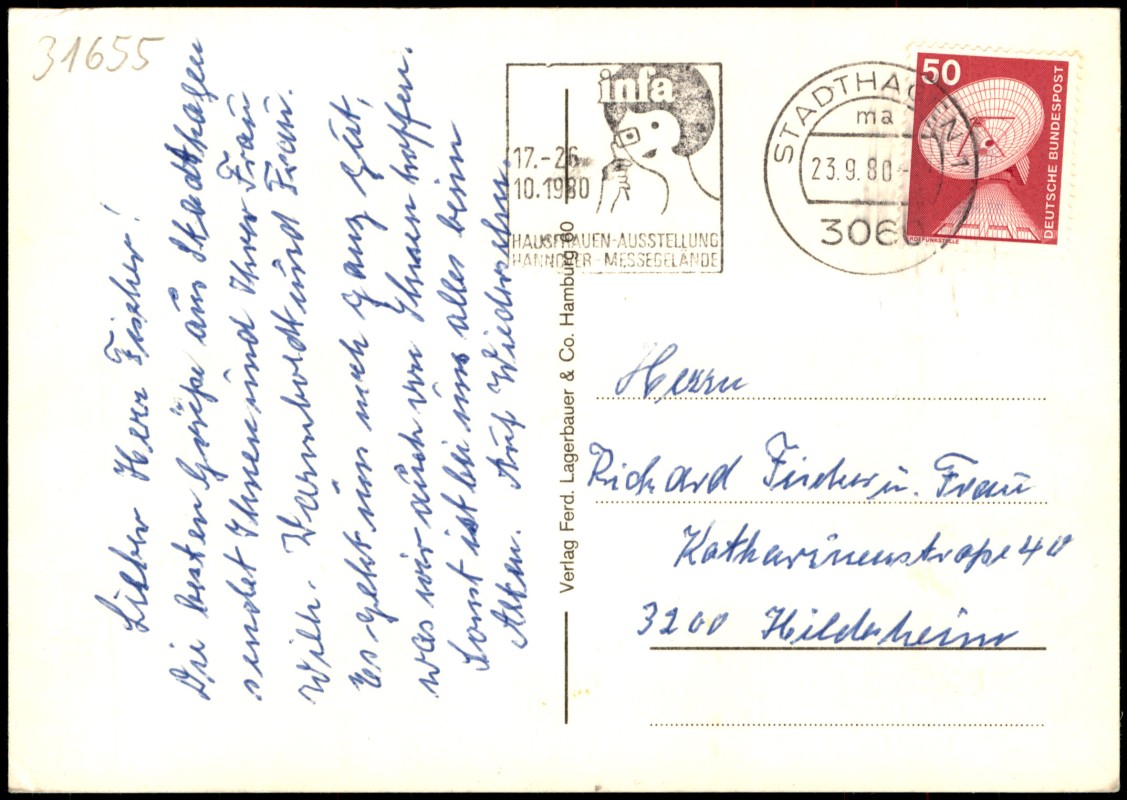 31655
Lieber Herr Fischer!
Die besten Grüße aus Stadthagen
sendet Ihnen und Ihrer Frau
Wilh. Warmboldt und Frau.
Es geht uns noch ganz gut,
was wir auch von Ihnen hoffen.
Sonst ist bei uns alles beim
Alten. Auf Wiedersehen
Verlag Ferd. Lagerbauer & Co. Hamburg 60
infa
17.-26.
10.1980
HAUSFRAUEN-AUSSTELLUNG
HANNOVER-MESSEGELÄNDE
STADTHAGEN 1
ma
23.9.80
3060
50
DEUTSCHE BUNDESPOST
ERDFUNKSTELLE
Herrn
Richard Fischer u. Frau
Katharinenstraße 40
3200 Hildesheim